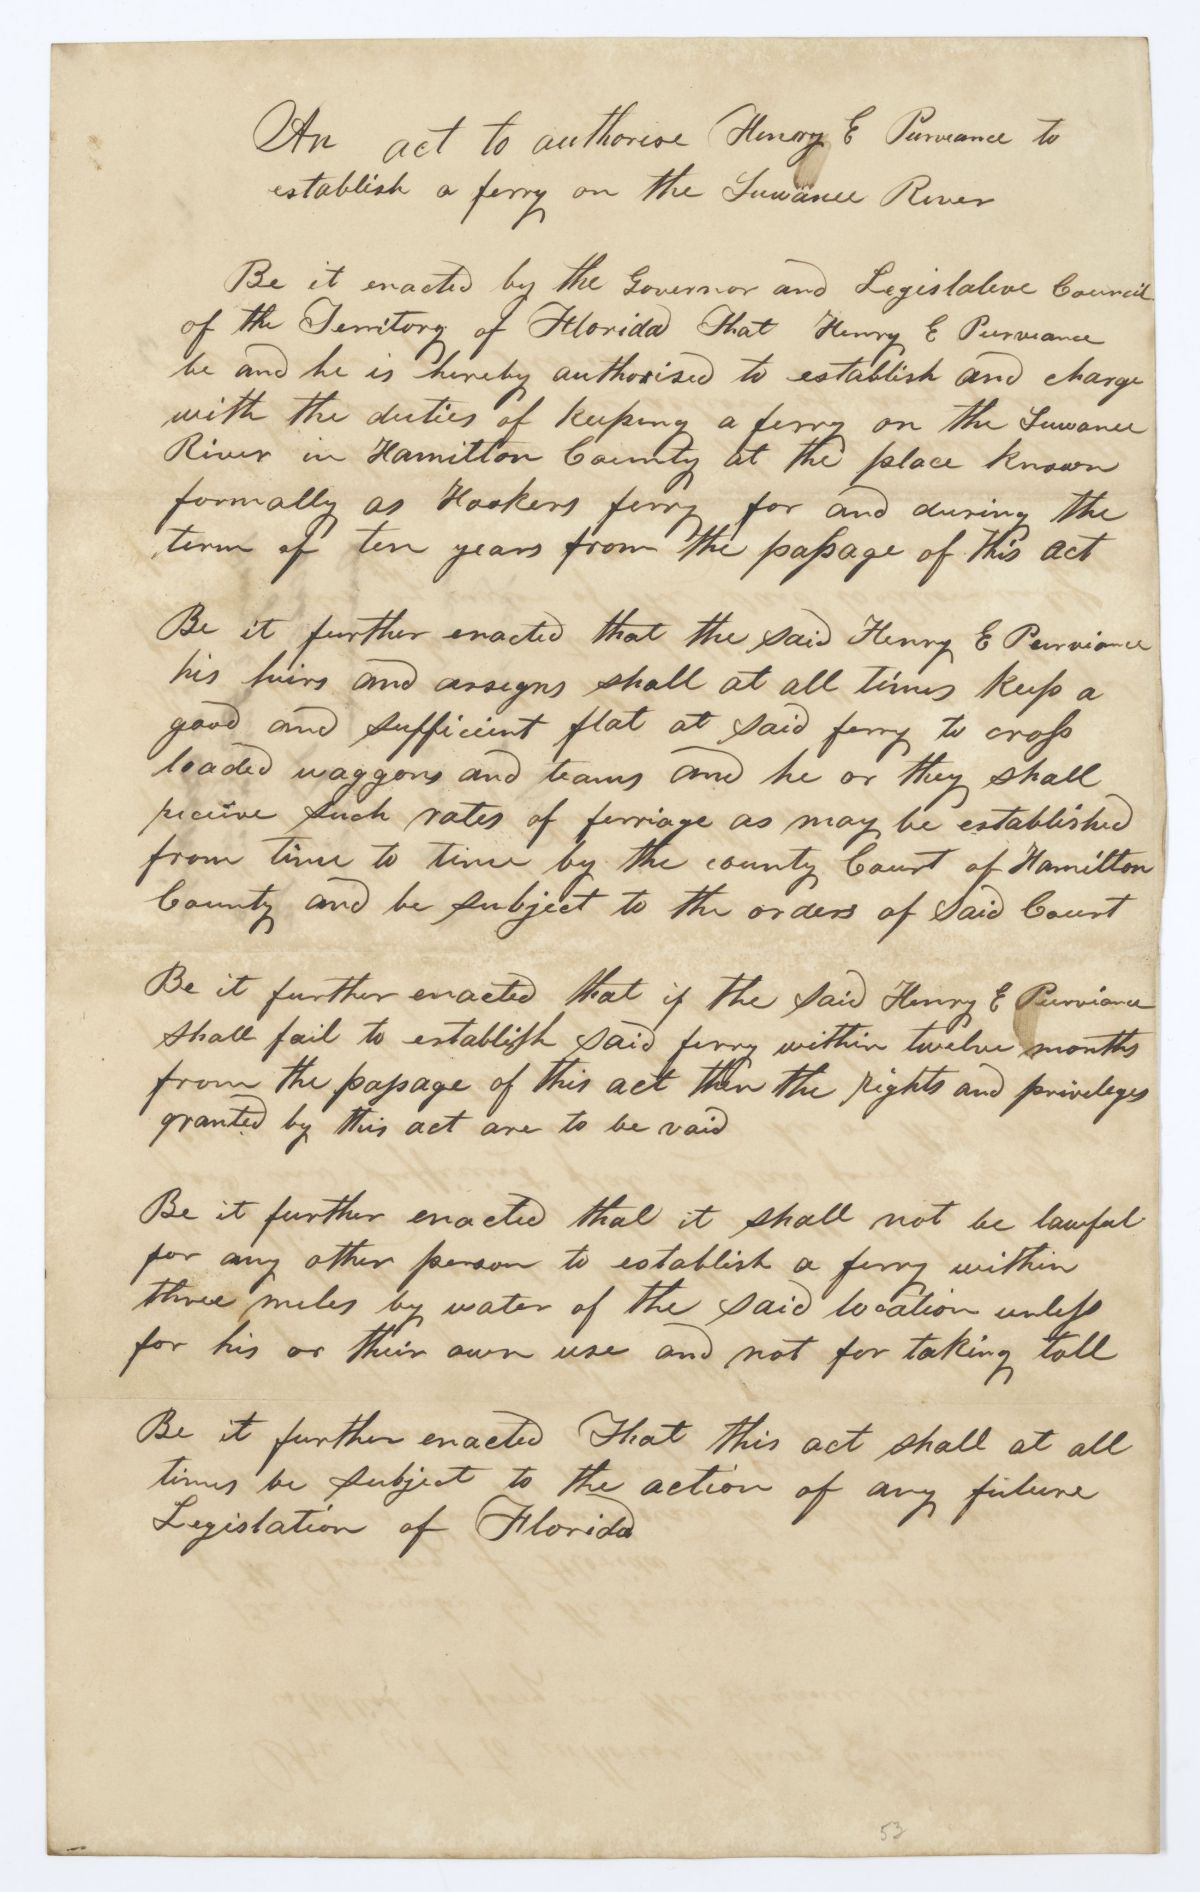 An act to authorise Henery E Purveance to
establish a ferry on the Suwanee River
Be it enacted by the Governor and Legislative Council
of the Territory of Florida That Henry E Purveance
be and he is hereby authorised to establish and charge
with the duties of keeping a ferry on the Suwanee
River in Hamilton County at the place known
formally as Hookers ferry for and during the
term of ten years from the passage of this act
Be it further enacted that the said Henry E Purviance
his heirs and assigns shall at all times keep a
good and sufficient flat at said ferry to cross
loaded waggons and teams and he or they shall
receive such rates of ferriage as may be established
from time to time by the county Court of Hamilton
County and be subject to the orders of said Court
Be it further enacted that if the said Henry E Purviance
shall fail to establish said ferry within twelve months
from the passage of this act then the rights and privileges
granted by this act are to be void
Be it further enacted that it shall not be lawful
for any other person to establish a ferry within
three miles by water of the said location unless
for his or their own use and not for taking toll
Be it further enacted That this act shall at all
times be subject to the action of any future
Legislation of Florida
53